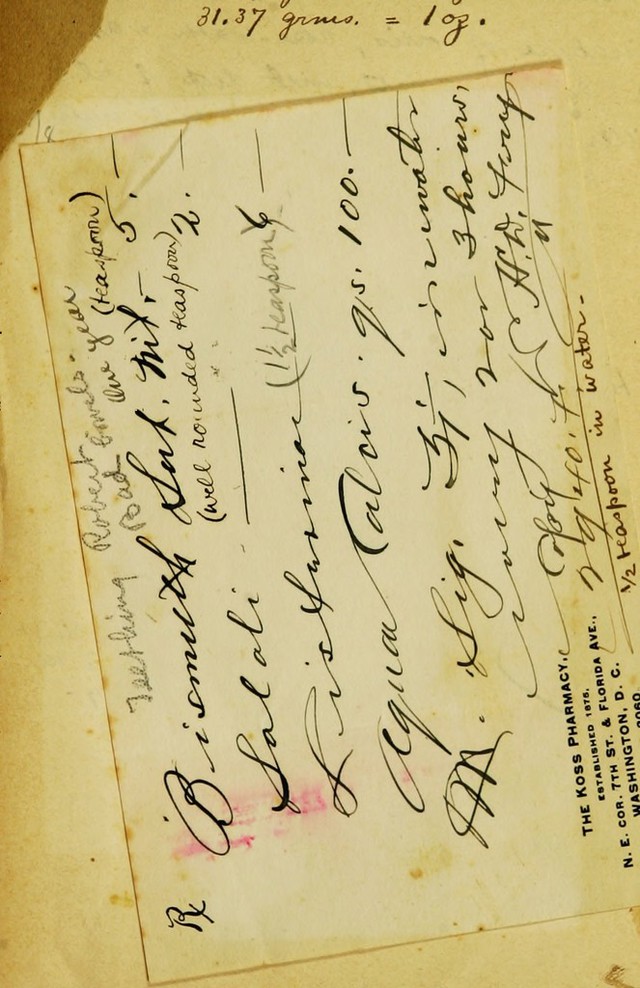 31.37 grms. = 1 oz.
Teething Robert - year
Bad bowels. One year (teaspoon)
Rx
Bismuth Sub. Nit. - 5. —
(well rounded teaspoon)
Saloli - — 2. —
Listerinae (1½ teaspoon) 6 —
Aqua Calcis. qs. 100. —
M. Sig. ʒj, in water
every 2 or 3 hours,
H.D.
Copy
29401
½ teaspoon in water.
THE KOSS PHARMACY,
ESTABLISHED 1876,
N. E. COR. 7TH ST. & FLORIDA AVE.,
WASHINGTON, D. C.